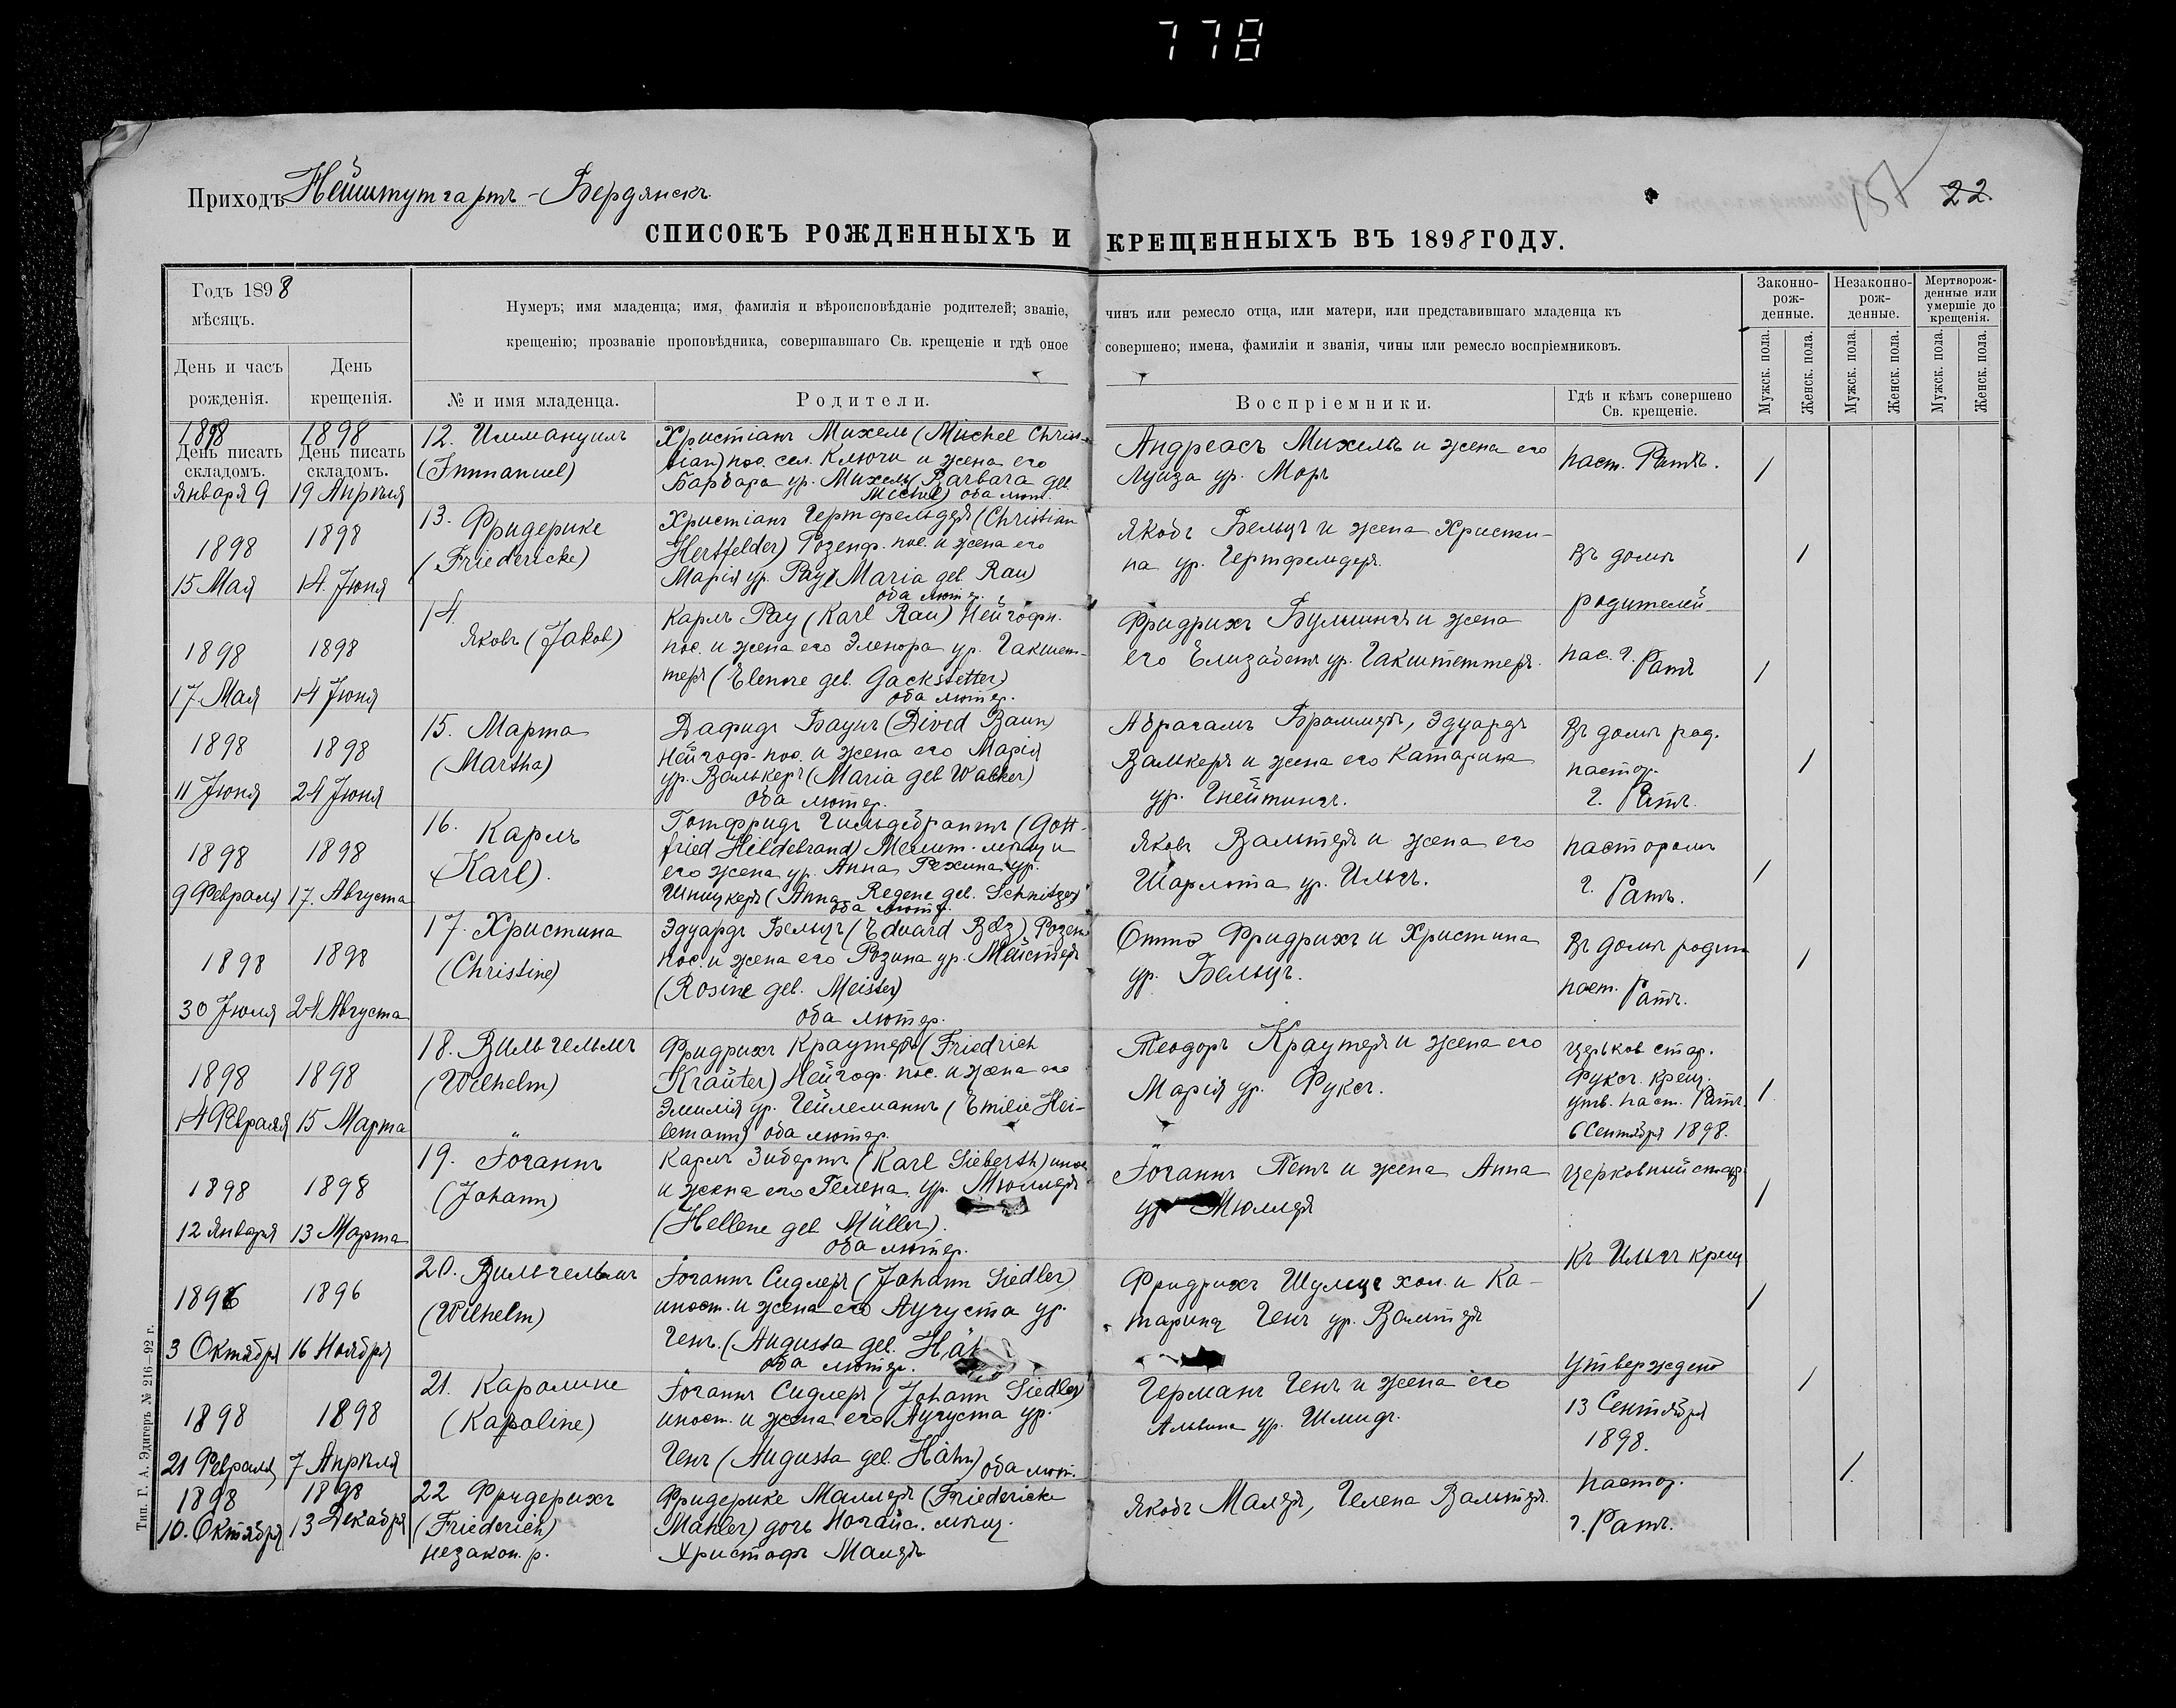 778
Приходъ Нейштутгартъ - Бердянскъ.
157 22.
СПИСОКЪ РОЖДЕННЫХЪ И КРЕЩЕННЫХЪ ВЪ 1898 ГОДУ.
Годъ 1898
мѣсяцъ.
День и часъ рожденія.
День крещенія.
Нумеръ; имя младенца; имя, фамилія и вѣроисповѣданіе родителей; званіе, чинъ или ремесло отца, или матери, или представившаго младенца къ
крещенію; прозваніе проповѣдника, совершавшаго Св. крещеніе и гдѣ оное совершено; имена, фамиліи и званія, чины или ремесло воспріемниковъ.
№ и имя младенца.
Родители.
Воспріемники.
Гдѣ и кѣмъ совершено Св. крещеніе.
Законно-рож-денные.
Незаконно-рож-денные.
Мертворож-денные или умершіе до крещенія.
Мужск. пола.
Женск. пола.
Мужск. пола.
Женск. пола.
Мужск. пола.
Женск. пола.
1898
День писать складомъ.
Января 9
1898
День писать складомъ.
19 Апрѣля
12. Иммануилъ
(Immanuel)
Христіанъ Михель (Michel Chris-
tian) пос. сел. Ключи и жена его
Барбара ур. Михель (Barbara geb.
Michel) оба лют.
Андреасъ Михель и жена его
Луиза ур. Моръ
паст. Ратъ.
1
1898
15 Мая
1898
14. Іюня
13. Фридерике
(Friedericke)
Христіанъ Гертфельдеръ (Christian
Hertfelder) Розенф. пос. и жена его
Марія ур. Рау (Maria geb. Rau)
оба лютер.
Якобъ Бельцъ и жена Христи-
на ур. Гертфельдеръ.
Въ домѣ
родителей
1
1898
17. Мая
1898
14 Іюня
14.
Яковъ (Jakob)
Карлъ Рау (Karl Rau) Нейгофн.
пос. и жена его Эленора ур. Гакштет-
теръ (Elenore geb. Gackstetter)
оба лютер.
Фридрихъ Булмингъ и жена
его Елизабетъ ур. Гакштеттеръ.
пас. г. Ратъ
1
1898
11 Іюня
1898
24 Іюня
15. Марта
(Martha)
Дафидъ Баумъ (David Baum)
Нейгоф. пос. и жена его Марія
ур. Валькеръ (Maria geb Walker)
оба лютер.
Абрагамъ Браммеръ, Эдуардъ
Валькеръ и жена его Катарина
ур. Гнейтингъ.
Въ домѣ род.
пастор.
г. Ратъ.
1
1898
9 Февраля
1898
17. Августа
16. Карлъ
(Karl).
Готфридъ Гильдебрантъ (Gott-
fried Hildebrand) Мелит. мѣщ и
его жена ур. Анна Рехина ур.
Шницкеръ (Anna Regene geb. Schnitzer)
оба лютер.
Яковъ Вальтеръ и жена его
Шарлота ур. Ильгъ.
пасторомъ
г. Ратъ.
1
1898
30 Іюля
1898
24 Августа
17. Христина
(Christine)
Эдуардъ Бельцъ (Eduard Belz) Розен.
пос. и жена его Розина ур. Мейстеръ
(Rosine geb. Meister)
оба лютер.
Отто Фридрихъ и Христина
ур. Бельцъ.
Въ домѣ родит
паст. Ратъ.
1
1898
14 Февраля
1898
15 Марта
18. Вильгельмъ
(Wilhelm)
Фридрихъ Краутеръ (Friedrich
Kräuter) Нейгоф. пос. и жена его
Эмилія ур. Гейлеманнъ (Emilie Hei-
lemann) оба лютер.
Теодоръ Краутеръ и жена его
Марія ур. Фуксъ.
церков стар.
Фуксъ. крещ.
утв. паст. Ратъ.
6 Сентября 1898.
1.
1898
12 Января
1898
13 Марта
19. Іоганнъ
(Johann)
Карлъ Зибертъ (Karl Sieberth) инос
и жена его Гелена ур. Мюллеръ
(Hellene geb Müller).
оба лютер.
Іоганнъ Петъ и жена Анна
ур Мюллеръ
Церковный стар.
1
1896
3 Октября
1896
16 Ноября
20. Вильгельмъ
(Wilhelm)
Іоганнъ Сидлеръ (Johann Siedler)
иност. и жена его Аугуста ур.
Генъ. (Augusta geb. Hä
оба лютер.
Фридрихъ Шульцъ хол. и Ка-
тарина Генъ ур. Вальтеръ
Къ Ильгъ крещ
1
1898
21 Февраля
1898
7 Апрѣля
21. Каролине
(Karoline)
Іоганнъ Сидлеръ (Johann Siedler)
иност. и жена его Аугуста ур.
Генъ (Augusta geb. Hähn) оба лют.
Германъ Генъ и жена его
Альвина ур. Шмидъ.
Утверждено
13 Сентября
1898.
1
1898
10. Октября
1898
13 Декабря
22 Фридерихъ
(Friederich)
незакон. р.
Фридерике Маллеръ (Friedericke
Mahler) дочь Ногайс. мѣщ.
Христофъ Малеръ
Якобъ Малеръ, Гелена Вальтеръ.
пастор.
г. Ратъ.
1.
Тип. Г. А. Эдигеръ № 216—92 г.